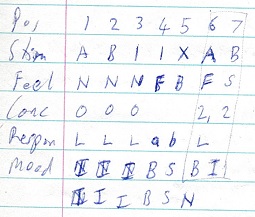 Pos 1 2 3 4 5 6 7
Stim A B I I X A B
Feel N N N F B F S
Conc 0 0 0 2, 2
Respon L L L a b L
Mood I I I B S B I
I I I B S N